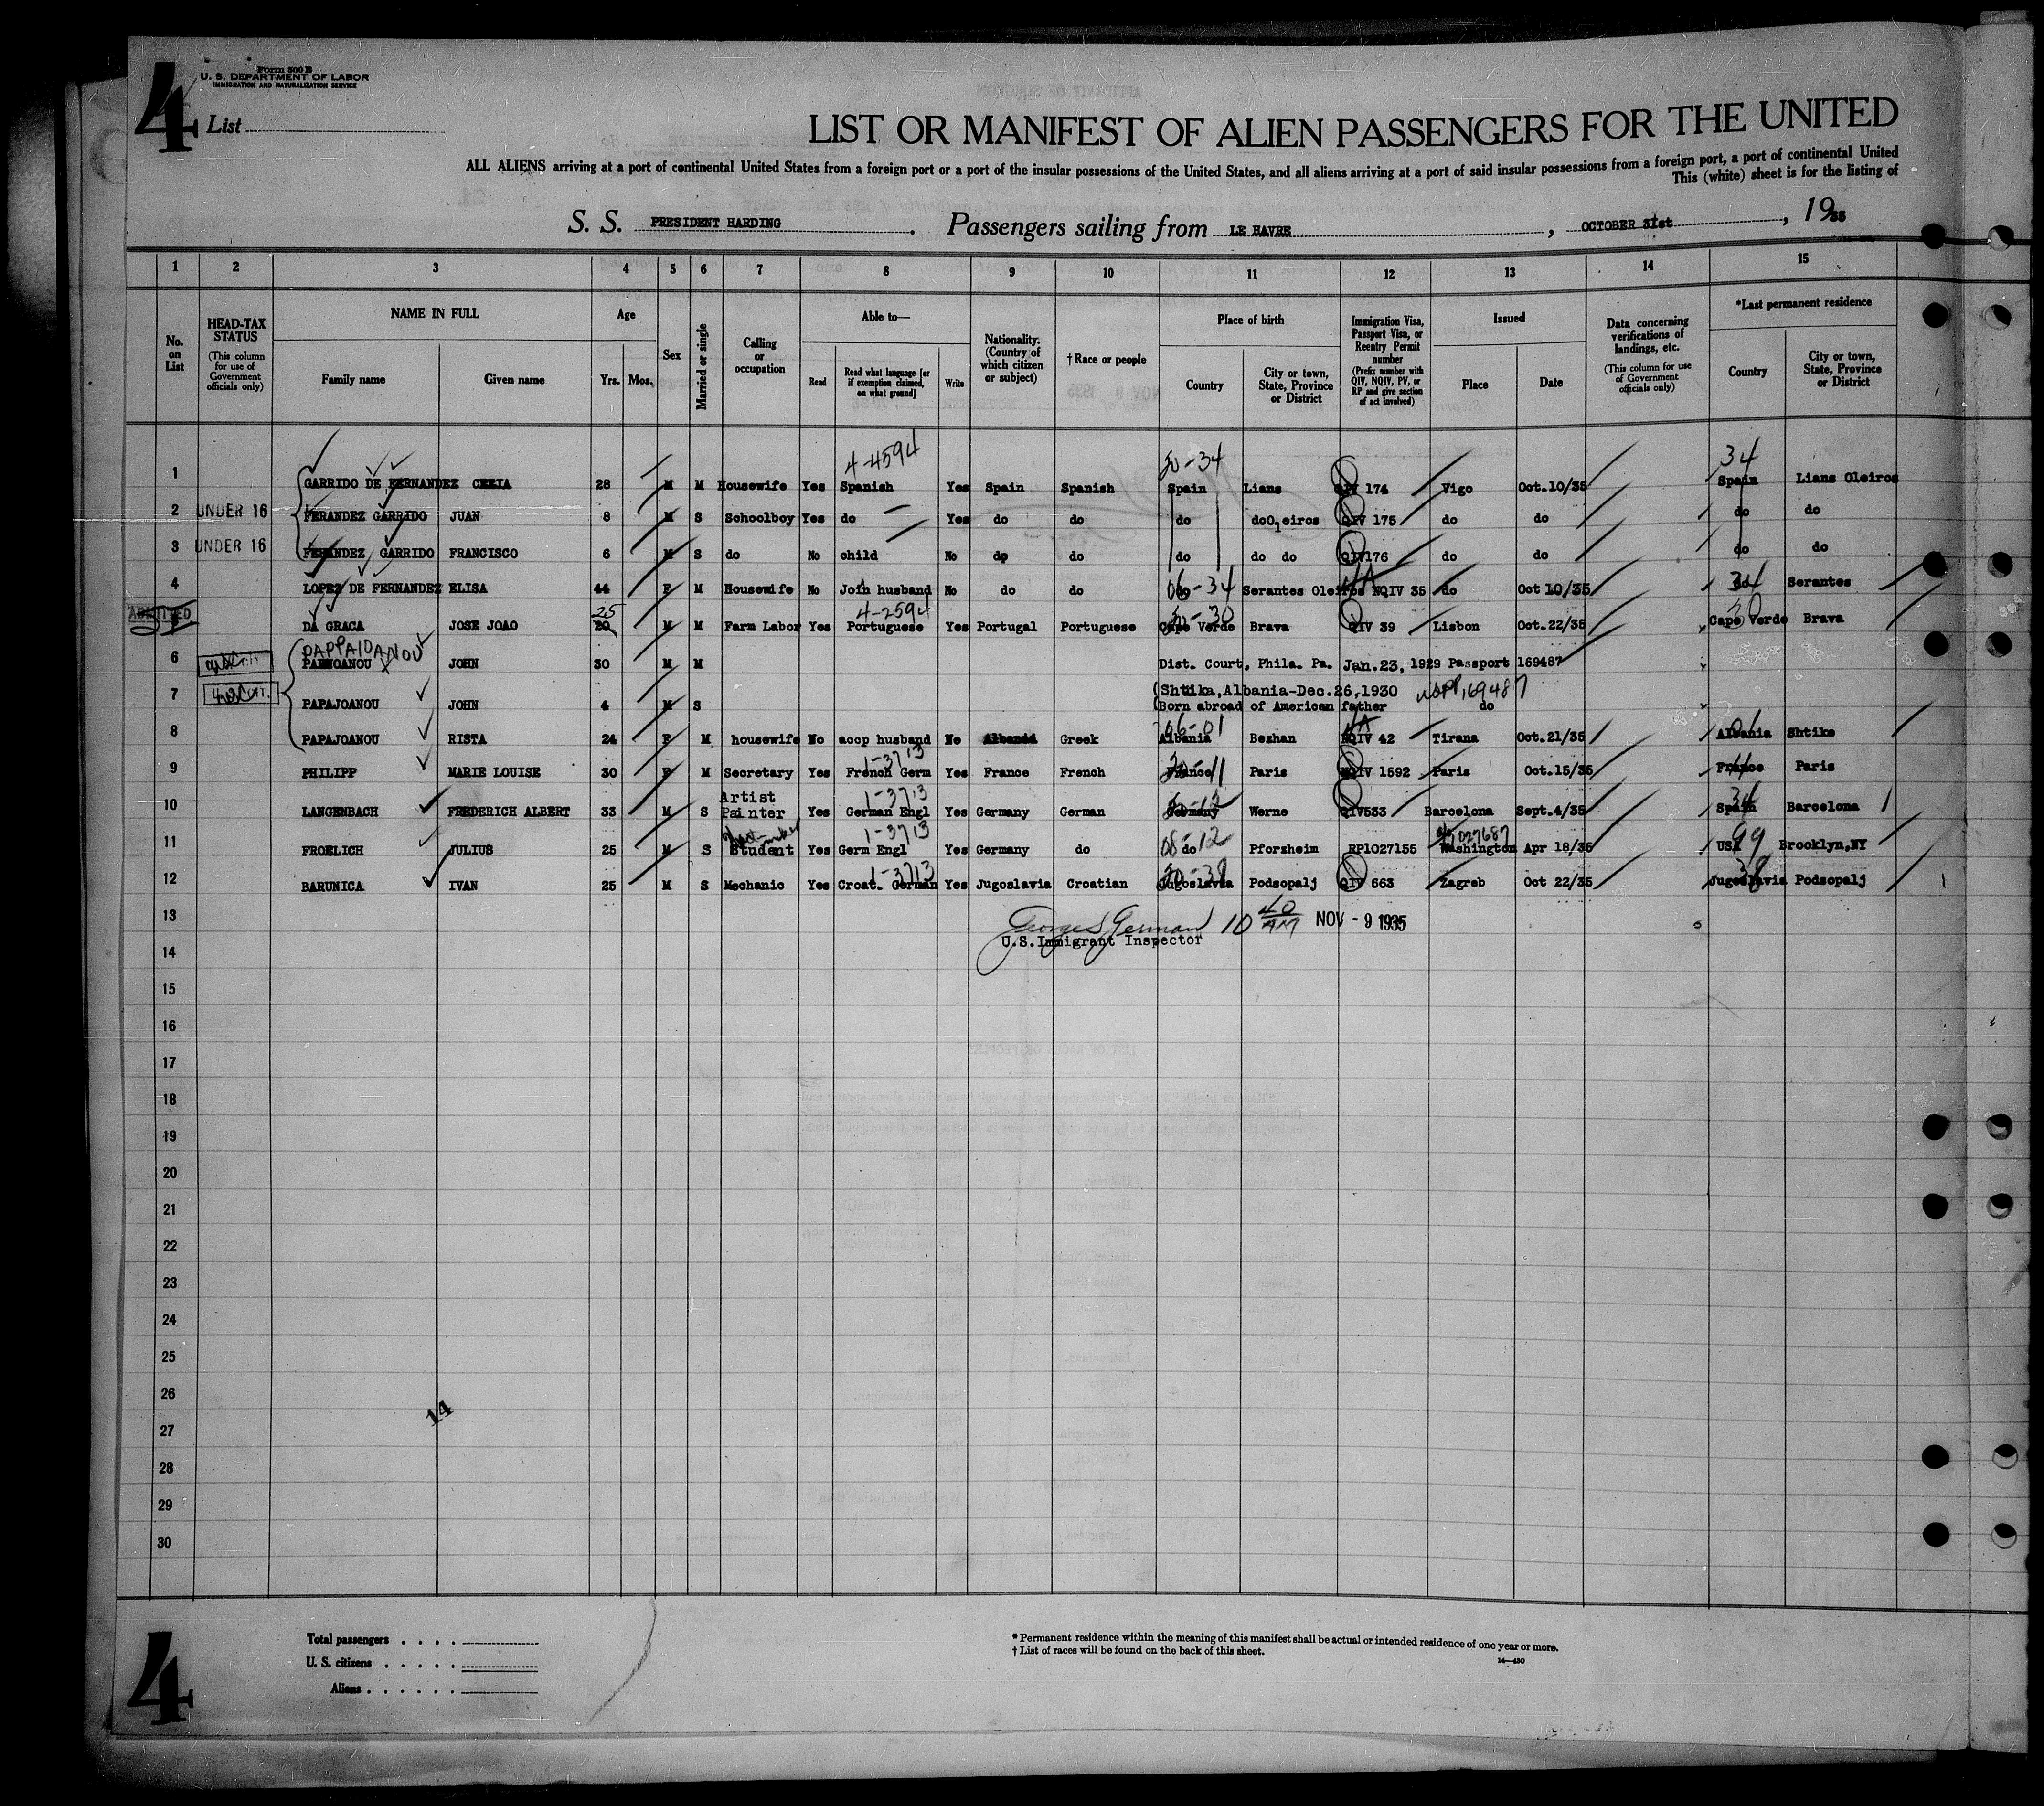 4
Form 500 B
U. S. DEPARTMENT OF LABOR
IMMIGRATION AND NATURALIZATION SERVICE
List
LIST OR MANIFEST OF ALIEN PASSENGERS FOR THE UNITED
ALL ALIENS arriving at a port of continental United States from a foreign port or a port of the insular possessions of the United States, and all aliens arriving at a port of said insular possessions from a foreign port, a port of continental United
This (white) sheet is for the listing of
S. S. PRESIDENT HARDING. Passengers sailing from LE HAVRE, OCTOBER 31st, 1935
1 2 3 4 5 6 7 8 9 10 11 12 13 14 15
No. on List
HEAD-TAX STATUS (This column for use of Government officials only)
NAME IN FULL
Family name Given name
Age
Yrs. Mos.
Sex
Married or single
Calling or occupation
Able to—
Read Read what language [or if exemption claimed, on what ground] Write
Nationality. (Country of which citizen or subject)
†Race or people
Place of birth
Country City or town, State, Province or District
Immigration Visa, Passport Visa, or Reentry Permit number (Prefix number with QIV, NQIV, PV, or RP and give section of act involved)
Issued
Place Date
Data concerning verifications of landings, etc. (This column for use of Government officials only)
*Last permanent residence
Country City or town, State, Province or District
4-4594 30-34 34
1 GARRIDO DE FERNANDEZ 28 M M Housewife Yes Spanish Yes Spain Spanish Spain Lians QIV 174 Vigo Oct.10/35 Spain Lians Oleiros
2 UNDER 16 FERANDEZ GARRIDO JUAN 8 M S Schoolboy Yes do Yes do do do do QIV 175 do do do do
3 UNDER 16 FERANDEZ GARRIDO FRANCISCO 6 M S do No child No do do do do do QIV176 do do do do
4 LOPEZ DE FERNANDEZ ELISA 44 F M Housewife No Join husband No do do 06-34 Serantes NQIV 35 do Oct 10/35 34 Serantes
ADMITTED 25 4-2594 30
5 DA GRACA JOSE JOAO 20 M M Farm Labor Yes Portuguese Yes Portugal Portuguese Cape Verde Brava QIV 39 Lisbon Oct.22/35 Cape Verde Brava
PAPPAIOANOU
6 JOHN 30 M M Dist. Court, Phila. Pa. Jan.23, 1929 Passport 169487
7 PAPAJOANOU JOHN 4 M S (Shtika,Albania-Dec.26,1930 USPP,169487
(Born abroad of American father do
06-01 01
8 PAPAJOANOU RISTA 24 F M housewife No accp husband No Albania Greek Albania Bezhan NQIV 42 Tirana Oct.21/35 Albania Shtike
1-3713
9 PHILIPP MARIE LOUISE 30 F M Secretary Yes French Germ Yes France French France Paris QIV 1592 Paris Oct.15/35 France Paris
1-3713
10 LANGENBACH FREDERICH ALBERT 33 M S Artist Painter Yes German Engl Yes Germany German Germany Werne QIV533 Barcelona Sept.4/35 Spain Barcelona
1-3713 08-12 99
11 FROELICH JULIUS 25 M S Student Yes Germ Engl Yes Germany do do Pforzheim RP1027155 Washington Apr 18/35 USA Brooklyn,NY
1-3713 30-38 38
12 BARUNICA IVAN 25 M S Mechanic Yes Croat. German Yes Jugoslavia Croatian Jugoslavia Podsopalj QIV 663 Zagreb Oct 22/35 Jugoslavia Podsopalj
13 George German 10 40 AM NOV - 9 1935
U.S.Immigrant Inspector
14
15
16
17
18
19
20
21
22
23
24
25
26
14
27
28
29
30
4
Total passengers
U. S. citizens
Aliens
* Permanent residence within the meaning of this manifest shall be actual or intended residence of one year or more.
† List of races will be found on the back of this sheet.
14—430